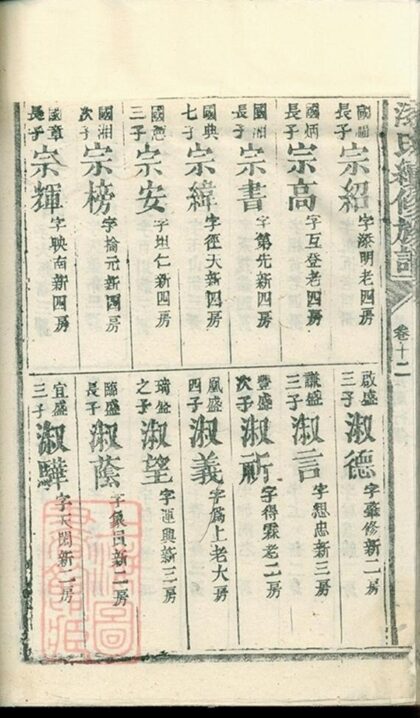 氏續修族譜
卷十二
長子宗紹字添明老四房
國炳長子宗高字互登老四房
國湘長子宗書字第先新四房
國典七子宗緯字徑天新四房
三子宗安字坦仁新四房
國湘次子宗榜字掄元新四房
國章長子宗輝字映南新四房
啟盛三子淑德字雖修新二房
謙盛三子淑言字想忠新三房
豐盛次子淑祈字得霖老二房
鳳盛四子淑義字爲上老大房
瑞盛之子淑望字運興新三房
臨盛長子淑蔭字員新二房
宜盛三子淑驊字天閑新二房